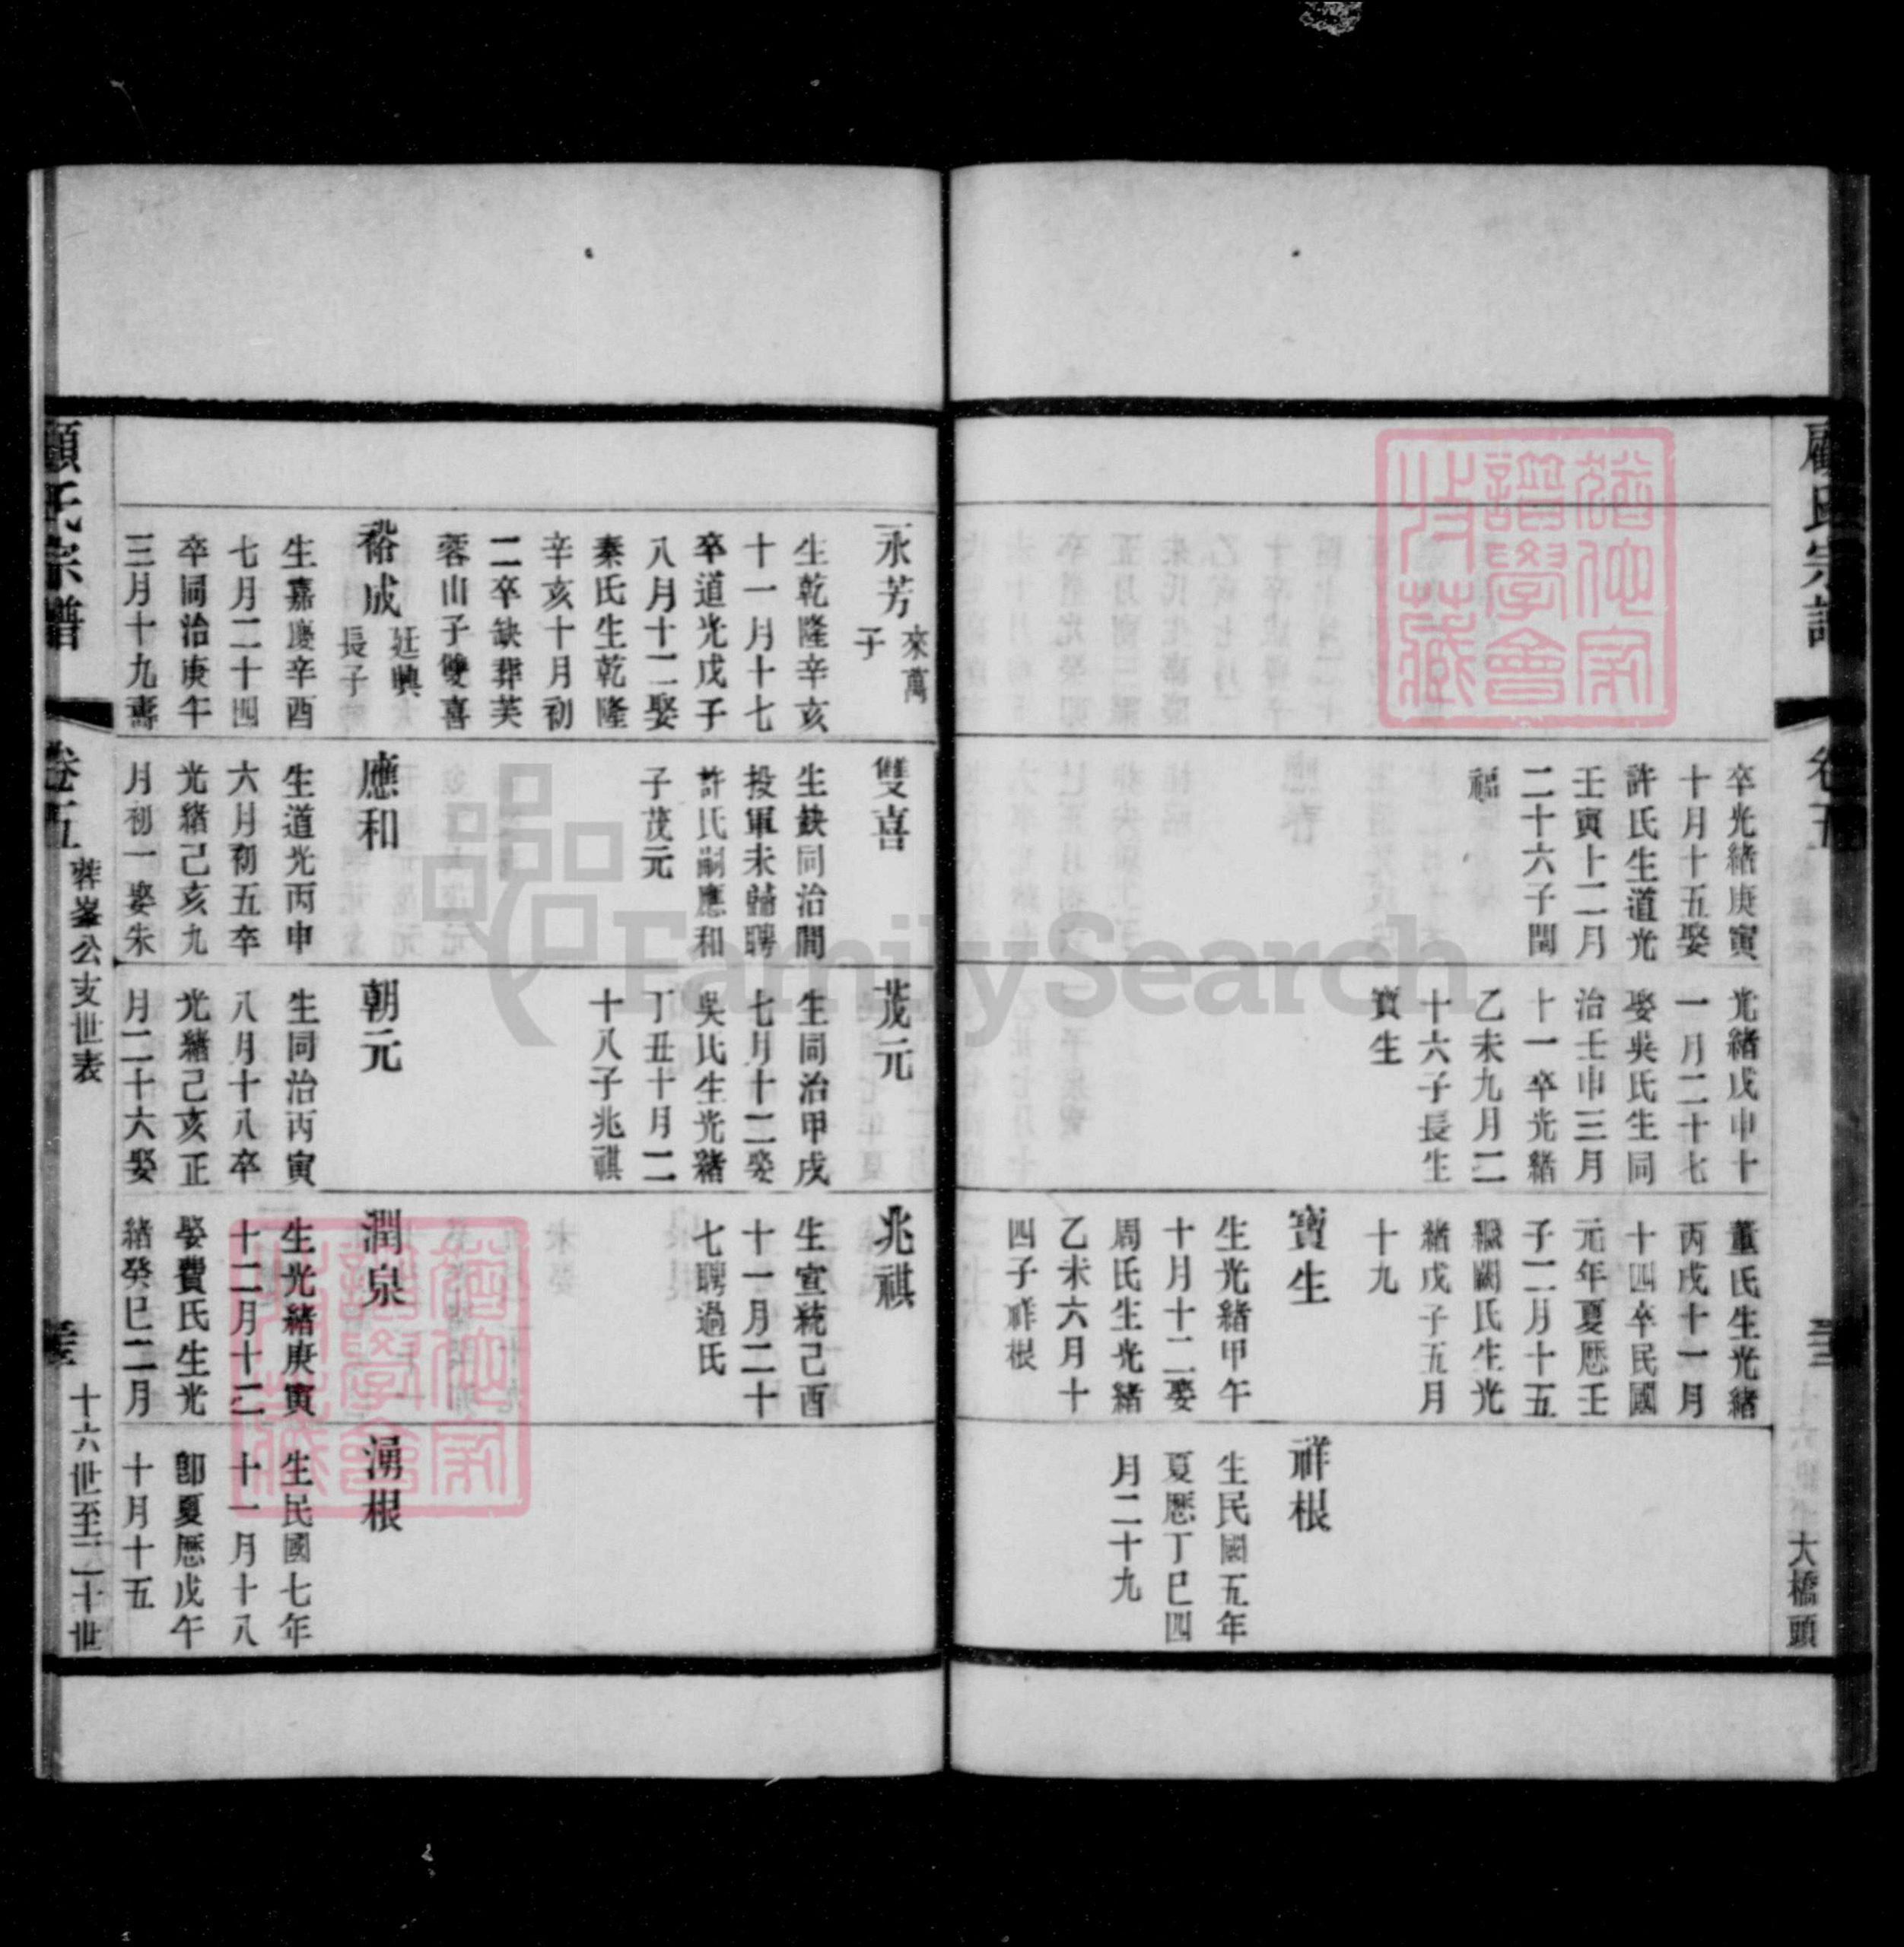 大橋頭
卒光緒庚寅
十月十五娶
許氏生道光
壬寅十二月
二十六子閏
福
光緒戊申十
一月二十七
娶吳氏生同
治壬申三月
十一卒光緒
乙未九月二
十六子長生
寶生
董氏生光緒
丙戌十一月
十四卒民國
元年夏歷壬
子二月十五
繼闕氏生光
緒戊子五月
十九
寶生
生光緒甲午
十月十二娶
周氏生光緒
乙未六月十
四子祥根
祥根
生民國五年
夏歷丁巳四
月二十九
永芳
來萬
子
生乾隆辛亥
十一月十七
卒道光戊子
八月十二娶
秦氏生乾隆
辛亥十月初
二卒缺葬芙
蓉山子雙喜
裕成
廷興
長子
生嘉慶辛酉
七月二十四
卒同治庚午
三月十九壽
雙喜
生缺同治間
投軍未歸聘
許氏嗣應和
子茂元
應和
生道光丙申
六月初五卒
光緒己亥九
月初一娶朱
茂元
生同治甲戌
七月十二娶
吳氏生光緒
丁丑十月二
十八子兆祺
朝元
生同治丙寅
八月十八卒
光緒己亥正
月二十六娶
兆祺
生宣統己酉
十一月二十
七聘過氏
潤泉
生光緒庚寅
十二月十二
娶費氏生光
緒癸巳二月
湧根
生民國七年
十一月十八
卽夏歷戊午
十月十五
顧氏宗譜
卷五
蓉峯公支世表
十六世至二十世
FamilySearch